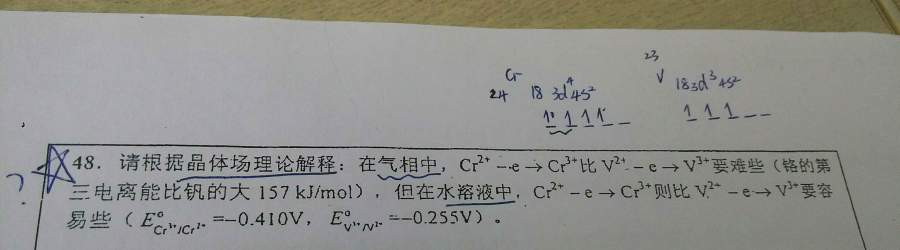 Cr
24 18 3d⁴4s²
1 1 1 1 _
23
V 18 3d³ 4s²
1 1 1 _ _
?
48. 请根据晶体场理论解释：在气相中，Cr²⁺ －e → Cr³⁺比 V²⁺ －e → V³⁺要难些（铬的第
三电离能比钒的大 157 kJ/mol），但在水溶液中，Cr²⁺ － e → Cr³⁺则比 V²⁺ － e → V³⁺要容
易些（E°Cr³⁺/Cr²⁺ =−0.410V，E°V³⁺/V²⁺ =−0.255V）。